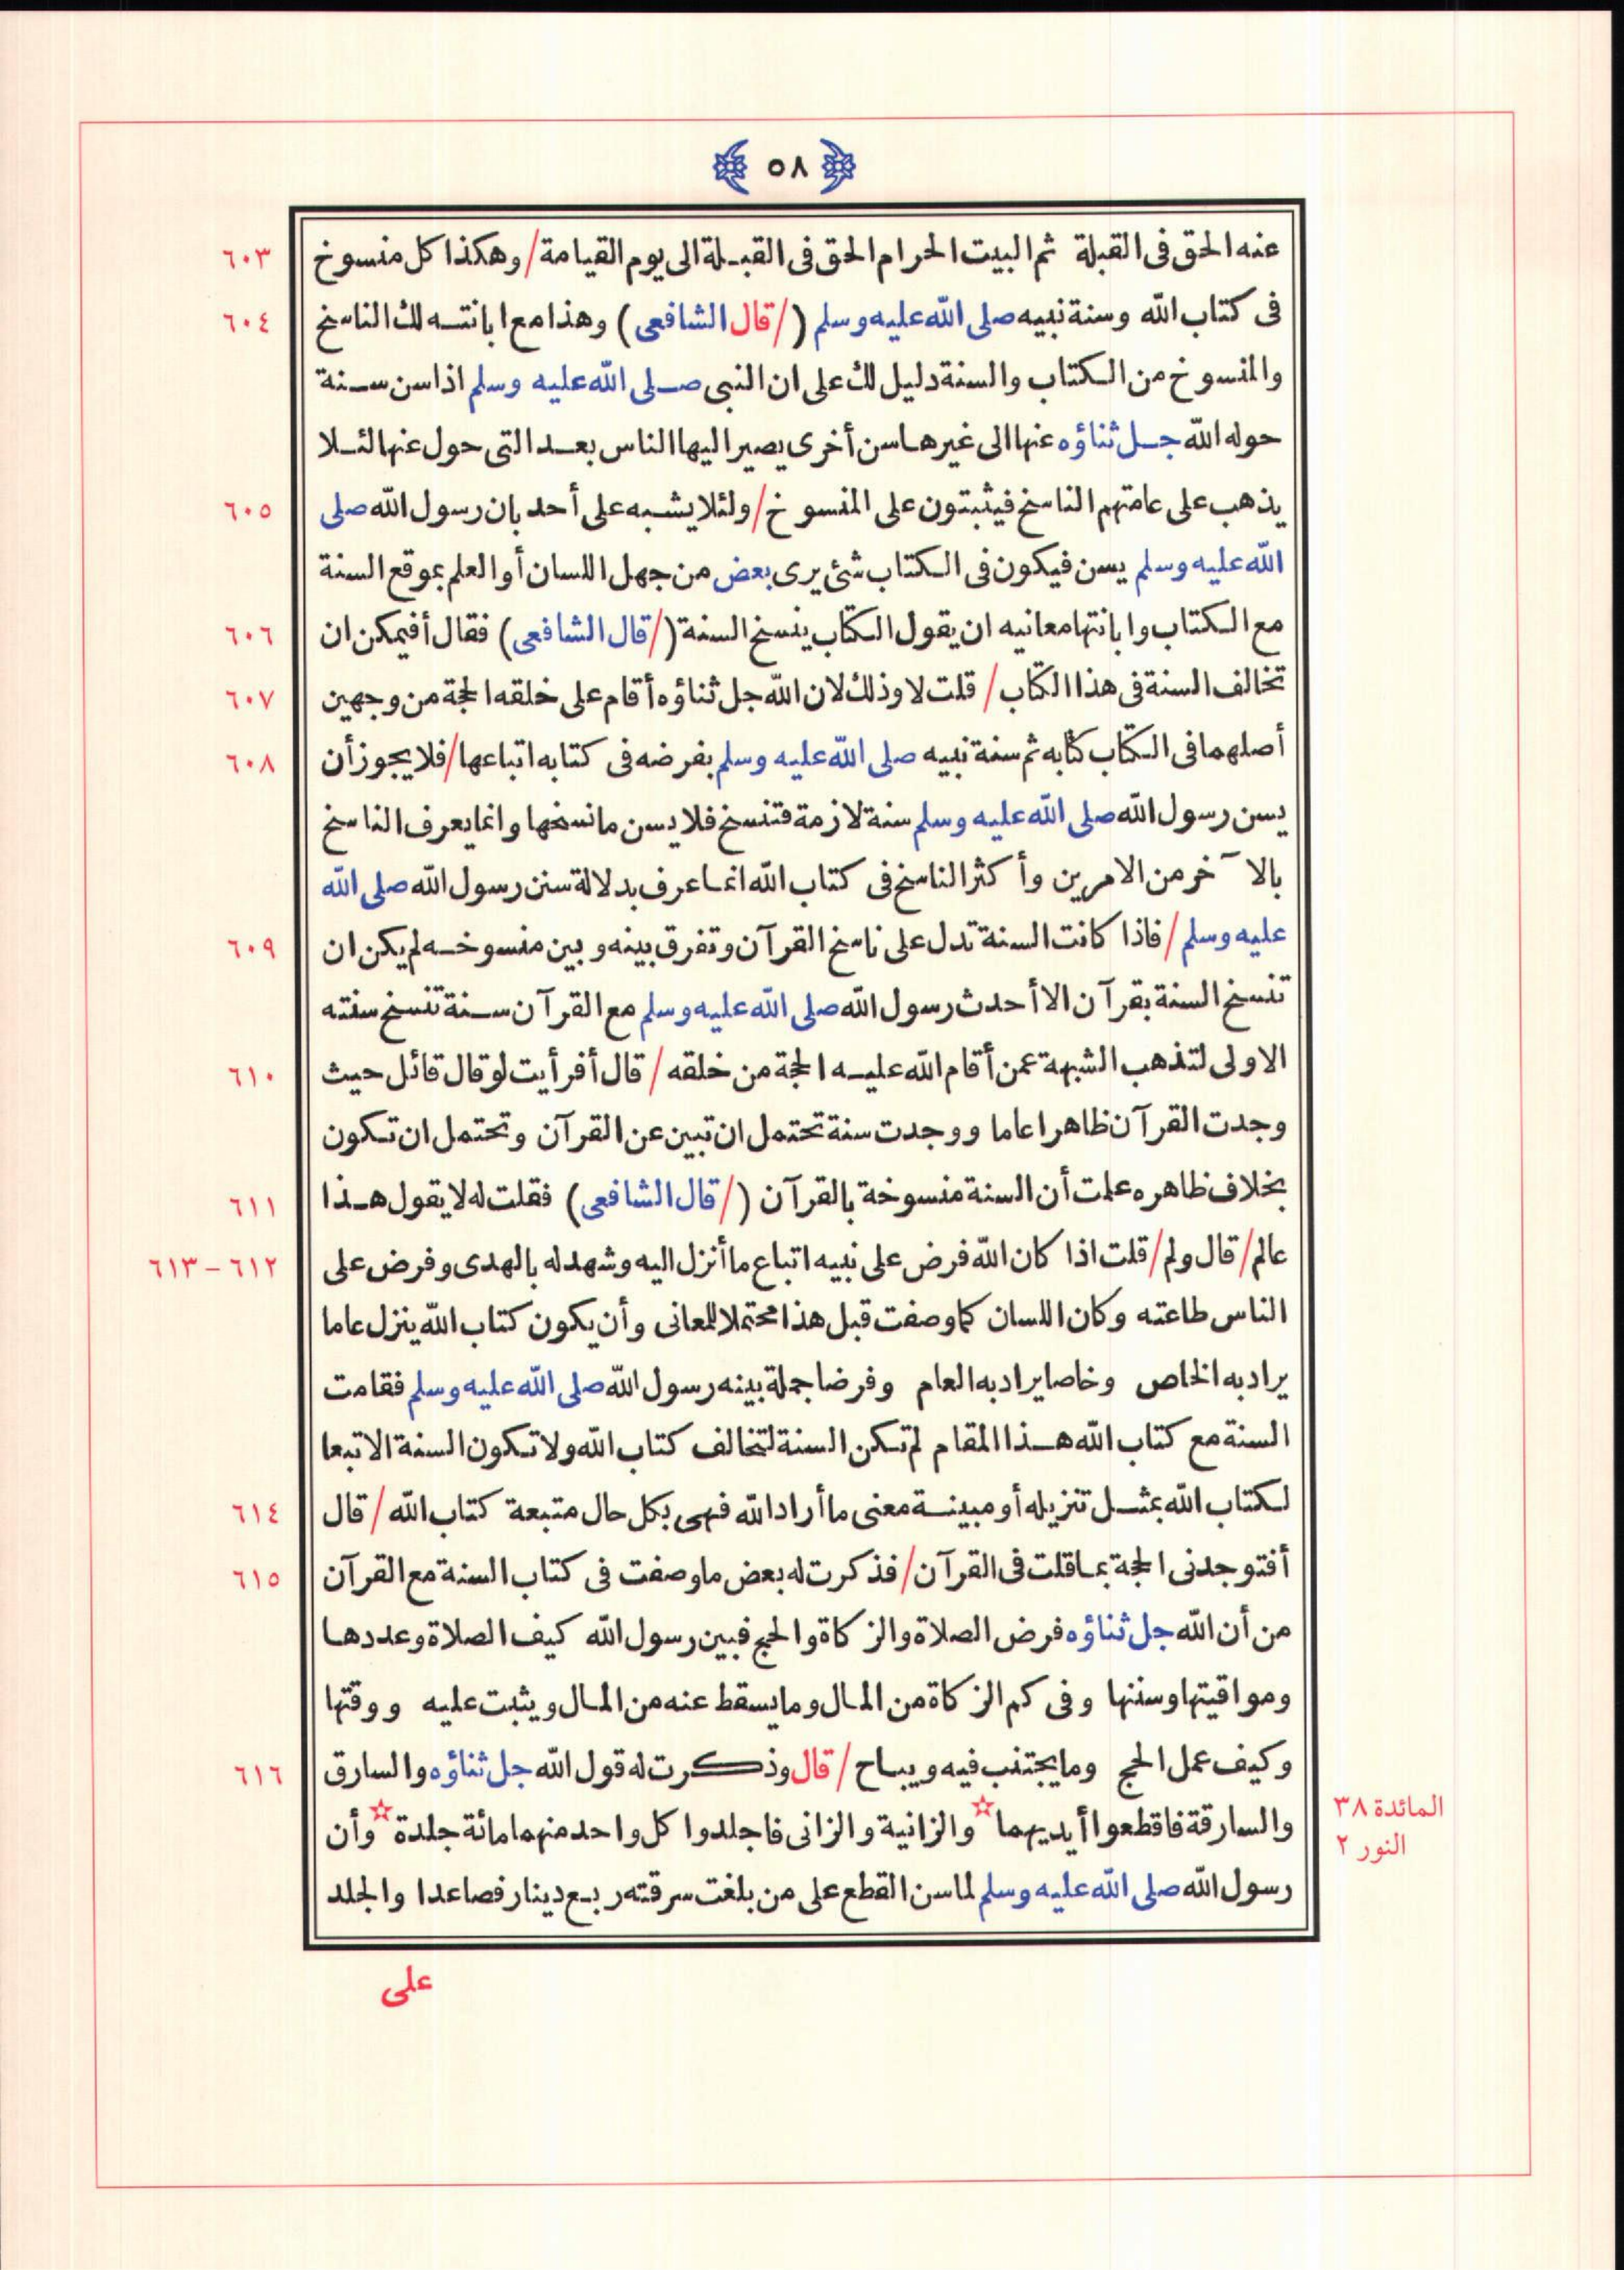 ٥٨
عنه الحق فى القبلة ثم البيت الحرام الحق فى القبلة الى يوم القيامة/وهكذا كل منسوخ ٦٠٣
فى كتاب الله وسنة نبيه صلى الله عليه وسلم (/قال الشافعى) وهذا مع ابانته لك الناسخ ٦٠٤
والمنسوخ من الكتاب والسنة دليل لك على ان النبى صلى الله عليه وسلم اذا سن سنة
حوله الله جل ثناؤه عنها الى غيرها سن أخرى يصير اليها الناس بعد التى حول عنها لئلا
يذهب على عامتهم الناسخ فيثبتون على المنسوخ/ولئلا يشبه على أحد بان رسول الله صلى ٦٠٥
الله عليه وسلم يسن فيكون فى الكتاب شئ يرى بعض من جهل اللسان أو العلم بموقع السنة
مع الكتاب وابانتها معانيه ان يقول الكتاب ينسخ السنة (/قال الشافعى) فقال أفيمكن ان ٦٠٦
تخالف السنة فى هذا الكتاب/ قلت لا وذلك لان الله جل ثناؤه أقام على خلقه الحجة من وجهين ٦٠٧
أصلهما فى الكتاب كتابه ثم سنة نبيه صلى الله عليه وسلم بفرضه فى كتابه اتباعها/فلا يجوز أن ٦٠٨
يسن رسول الله صلى الله عليه وسلم سنة لازمة فتنسخ فلا يسن ما نسخها وانما يعرف الناسخ
بالآخر من الامرين وأكثر الناسخ فى كتاب الله انما عرف بدلالة سنن رسول الله صلى الله
عليه وسلم/فاذا كانت السنة تدل على ناسخ القرآن وتفرق بينه وبين منسوخه لم يكن ان ٦٠٩
تنسخ السنة بقرآن الا أحدث رسول الله صلى الله عليه وسلم مع القرآن سنة تنسخ سنته
الاولى لتذهب الشبهة عمن أقام الله عليه الحجة من خلقه/ قال أفرأيت لو قال قائل حيث ٦١٠
وجدت القرآن ظاهرا عاما ووجدت سنة تحتمل ان تبين عن القرآن وتحتمل ان تكون
بخلاف ظاهره علمت أن السنة منسوخة بالقرآن (/قال الشافعى) فقلت له لا يقول هذا ٦١١
عالم/قال ولم/قلت اذا كان الله فرض على نبيه اتباع ما أنزل اليه وشهد له بالهدى وفرض على ٦١٢-٦١٣
الناس طاعته وكان اللسان كما وصفت قبل هذا محتملا للمعانى وأن يكون كتاب الله ينزل عاما
يراد به الخاص وخاصا يراد به العام وفرضا جملة بينه رسول الله صلى الله عليه وسلم فقامت
السنة مع كتاب الله هذا المقام لم تكن السنة لتخالف كتاب الله ولا تكون السنة الا تبعا
لكتاب الله بمثل تنزيله أو مبينة معنى ما أراد الله فهى بكل حال متبعة كتاب الله/ قال ٦١٤
أفتوجدنى الحجة بما قلت فى القرآن/فذكرت له بعض ما وصفت فى كتاب السنة مع القرآن ٦١٥
من أن الله جل ثناؤه فرض الصلاة والزكاة والحج فبين رسول الله كيف الصلاة وعددها
ومواقيتها وسننها وفى كم الزكاة من المال وما يسقط عنه من المال ويثبت عليه ووقتها
وكيف عمل الحج وما يجتنب فيه ويباح/ قال وذكرت له قول الله جل ثناؤه والسارق ٦١٦
والسارقة فاقطعوا أيديهما☆ والزانية والزانى فاجلدوا كل واحد منهما مائة جلدة☆ وأن
رسول الله صلى الله عليه وسلم لما سن القطع على من بلغت سرقته ربع دينار فصاعدا والجلد
المائدة ٣٨
النور ٢
على